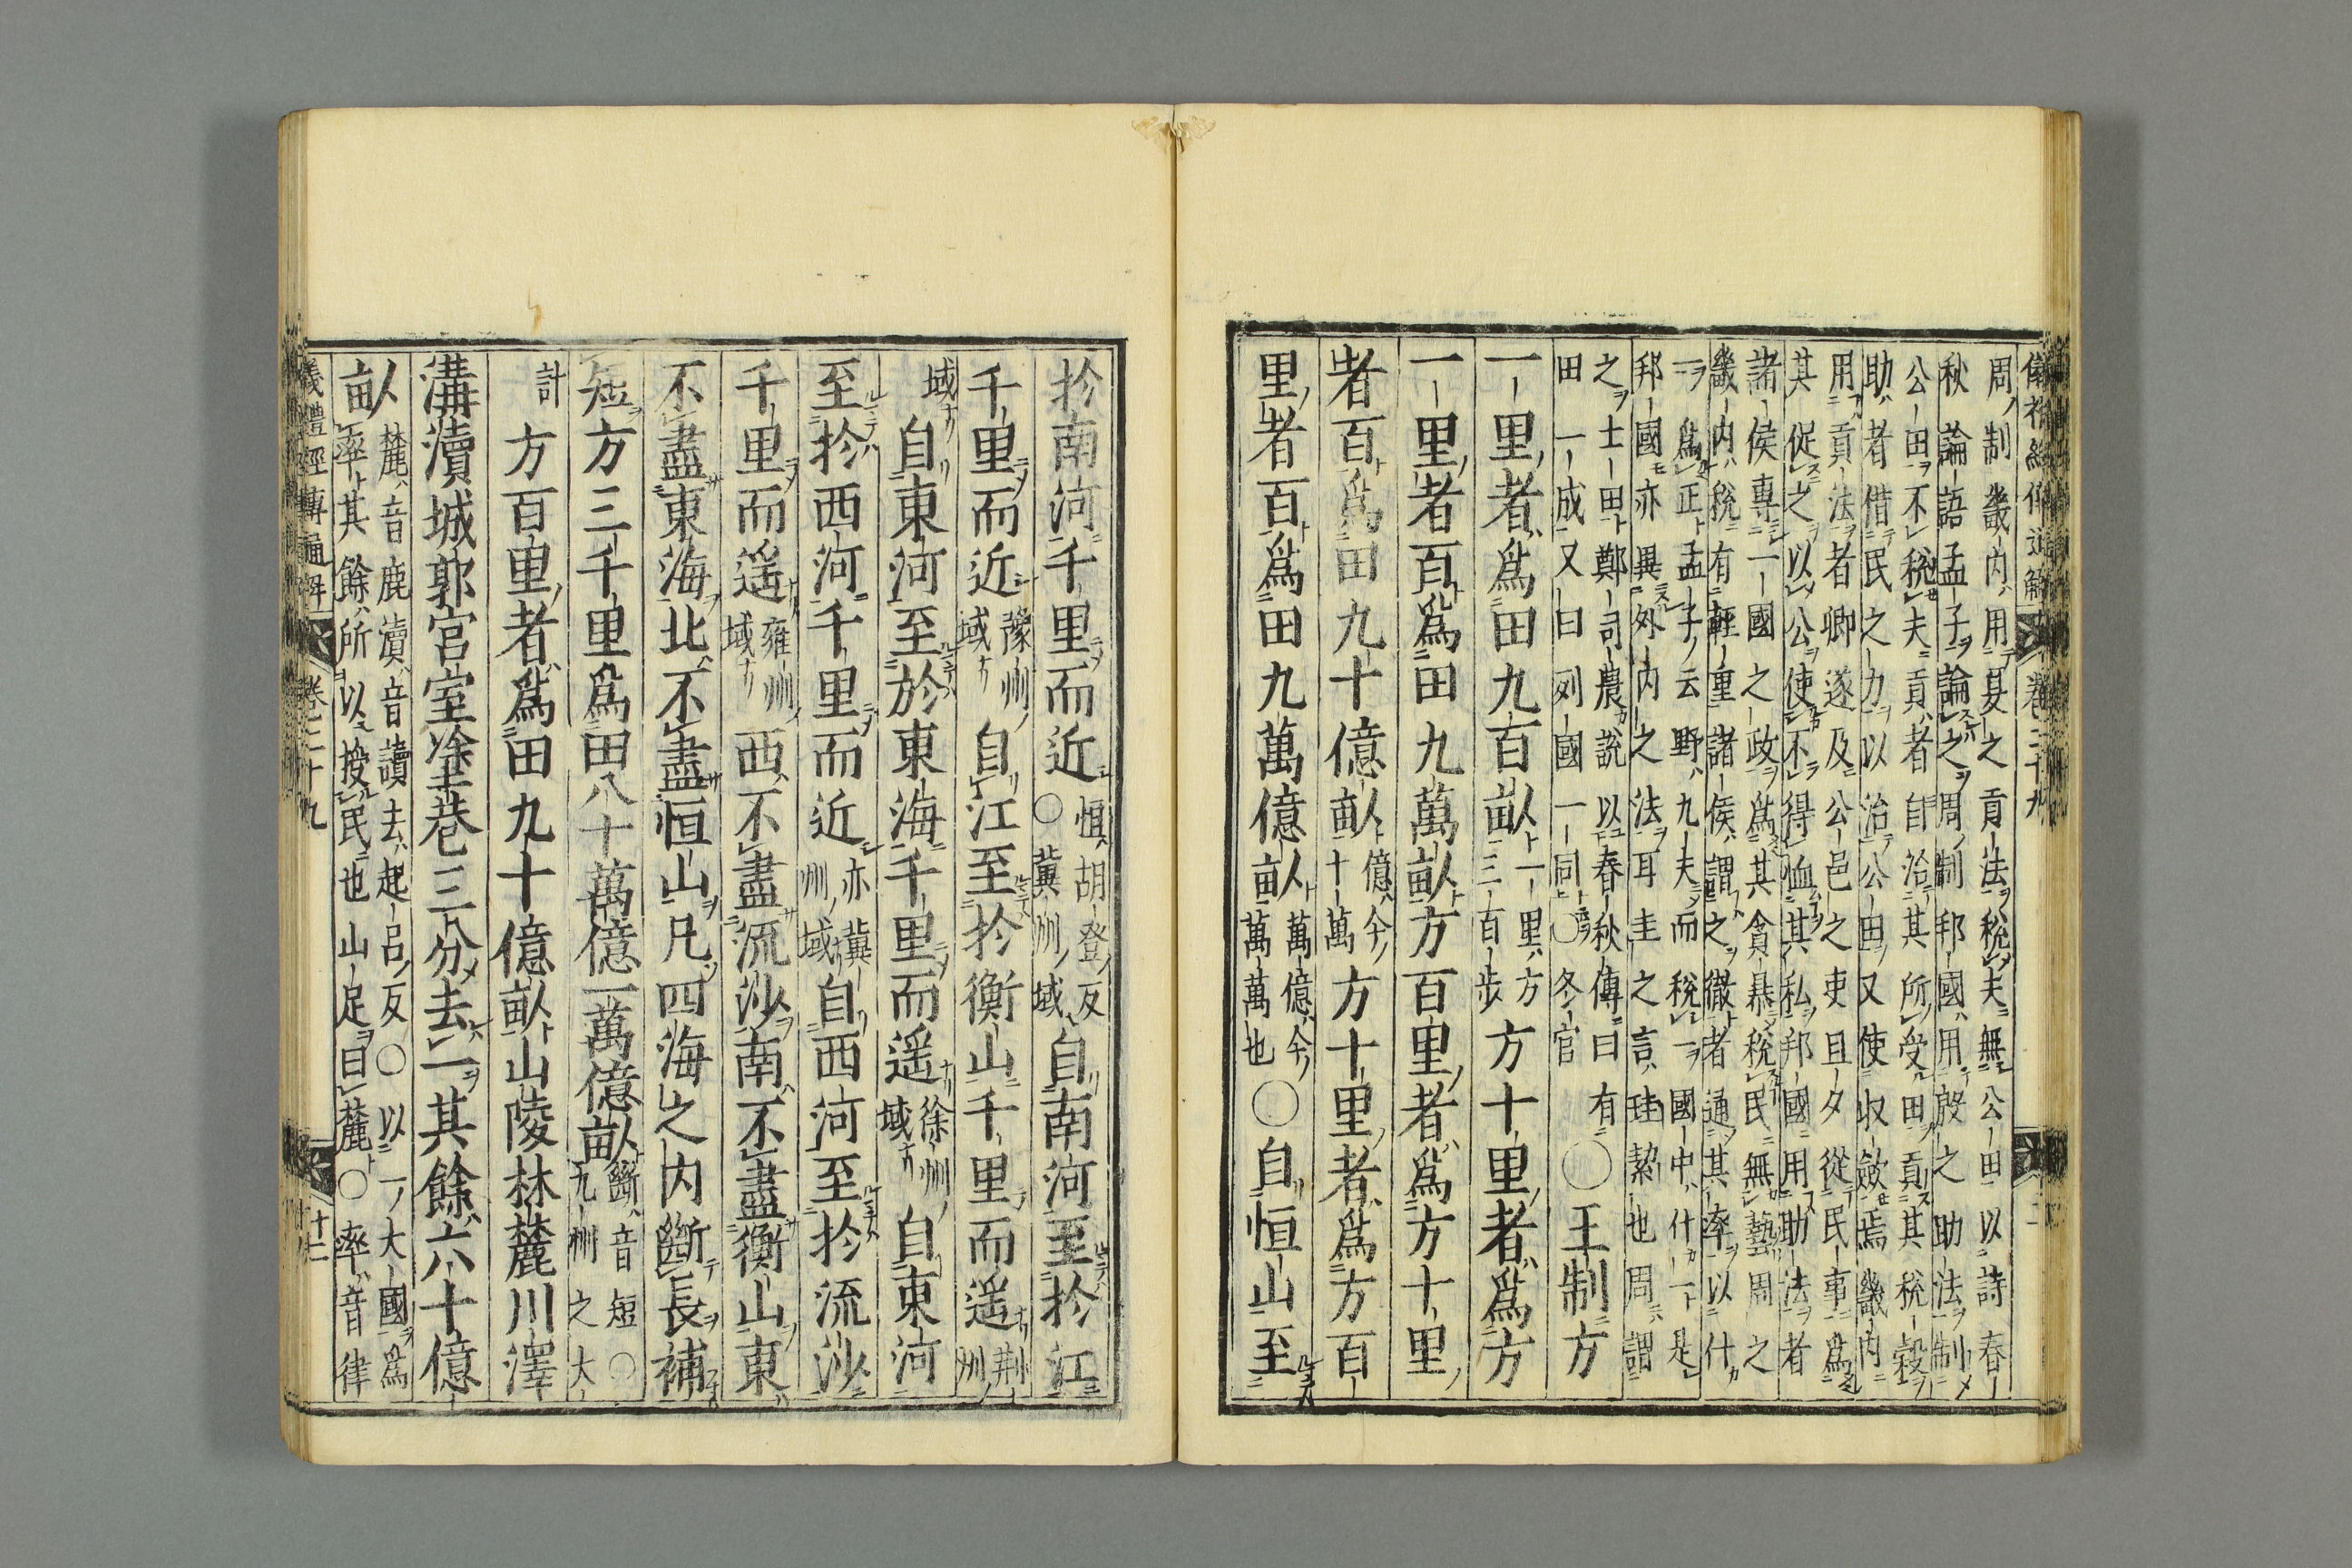 周制畿内用夏之貢法稅夫無公田以詩春
秋論語孟子論之周制邦國用殷之助法制
公田不稅夫貢者自治其所受田貢其稅穀
助者借民之力以治公田又使収斂焉畿内
用貢法者卿遂及公邑之吏且夕從民事爲
其促之以公使不得恤其私邦國用助法者
諸侯專一國之政爲其貪暴稅民無藝周之
畿内稅有輕重諸侯謂之徹者通其率以什
一爲正孟子云野九夫而稅一國中什一是
邦國亦異外内之法耳圭之言珪絜也周謂
之士田鄭司農說以春秋傳曰有
田一成又曰列國一同○冬官
○王制方
一里者爲田九百畝
一里方
三百步
方十里者爲方
一里者百爲田九萬畝方百里者爲方十里
者百爲田九十億畝
億今
十萬
方十里者爲方百
里者百爲田九萬億畝
萬億今
萬萬也
○自恒山至
於南河千里而近
恒胡登反
○冀州域
自南河至於江
千里而近
豫州
域
自江至於衡山千里而遥
荆
州
域
自東河至於東海千里而遥
徐州
域
自東河
至於西河千里而近
亦冀
州域
自西河至於流沙
千里而遥
雍州
域
西不盡流沙南不盡衡山東
不盡東海北不盡恒山凡四海之内斷長補
短方三千里爲田八十萬億一萬億畝
斷音短○
九州之大
計
方百里者爲田九十億畝山陵林麓川澤
溝瀆城郭宮室塗巷三分去一其餘六十億
畝
麓音鹿瀆音讀去起呂反○以一大國爲
率其餘所以授民也山足曰麓○率音律
儀禮經傳通解
卷二十九
十二